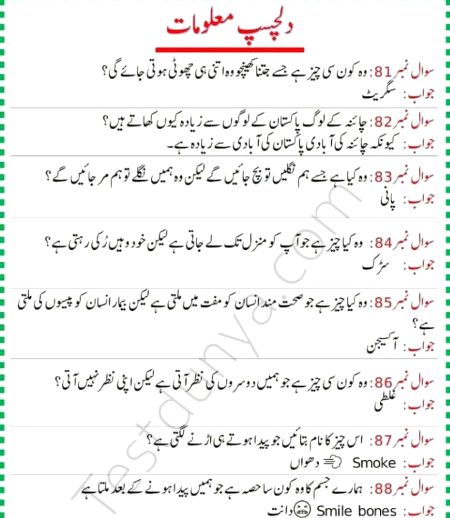 دلچسپ معلومات
سوال نمبر 81: وہ کون سی چیز ہے جسے جتنا کھینچو وہ اتنی ہی چھوٹی ہوتی جائے گی؟
جواب: سگریٹ
سوال نمبر 82: چائنہ کے لوگ پاکستان کے لوگوں سے زیادہ کیوں کھاتے ہیں؟
جواب: کیونکہ چائنہ کی آبادی پاکستان کی آبادی سے زیادہ ہے۔
سوال نمبر 83: وہ کیا ہے جسے ہم نگلیں تو بچ جائیں گے لیکن وہ ہمیں نگلے تو ہم مر جائیں گے؟
جواب: پانی
سوال نمبر 84: وہ کیا چیز ہے جو آپ کو منزل تک لے جاتی ہے لیکن خود وہیں رُکی رہتی ہے؟
جواب: سڑک
سوال نمبر 85: وہ کیا چیز ہے جو صحت مند انسان کو مفت میں ملتی ہے لیکن بیمار انسان کو پیسوں کی ملتی
ہے؟
جواب: آکسیجن
سوال نمبر 86: وہ کون سی چیز ہے جو ہمیں دوسروں کی نظر آتی ہے لیکن اپنی نظر نہیں آتی؟
جواب: غلطی
سوال نمبر 87: اس چیز کا نام بتائیں جو پیدا ہوتے ہی اڑنے لگتی ہے؟
جواب: Smoke دھواں
سوال نمبر 88: ہمارے جسم کا وہ کون سا حصہ ہے جو ہمیں پیدا ہونے کے بعد ملتا ہے
جواب: Smile bones دانت
Testdunya.com